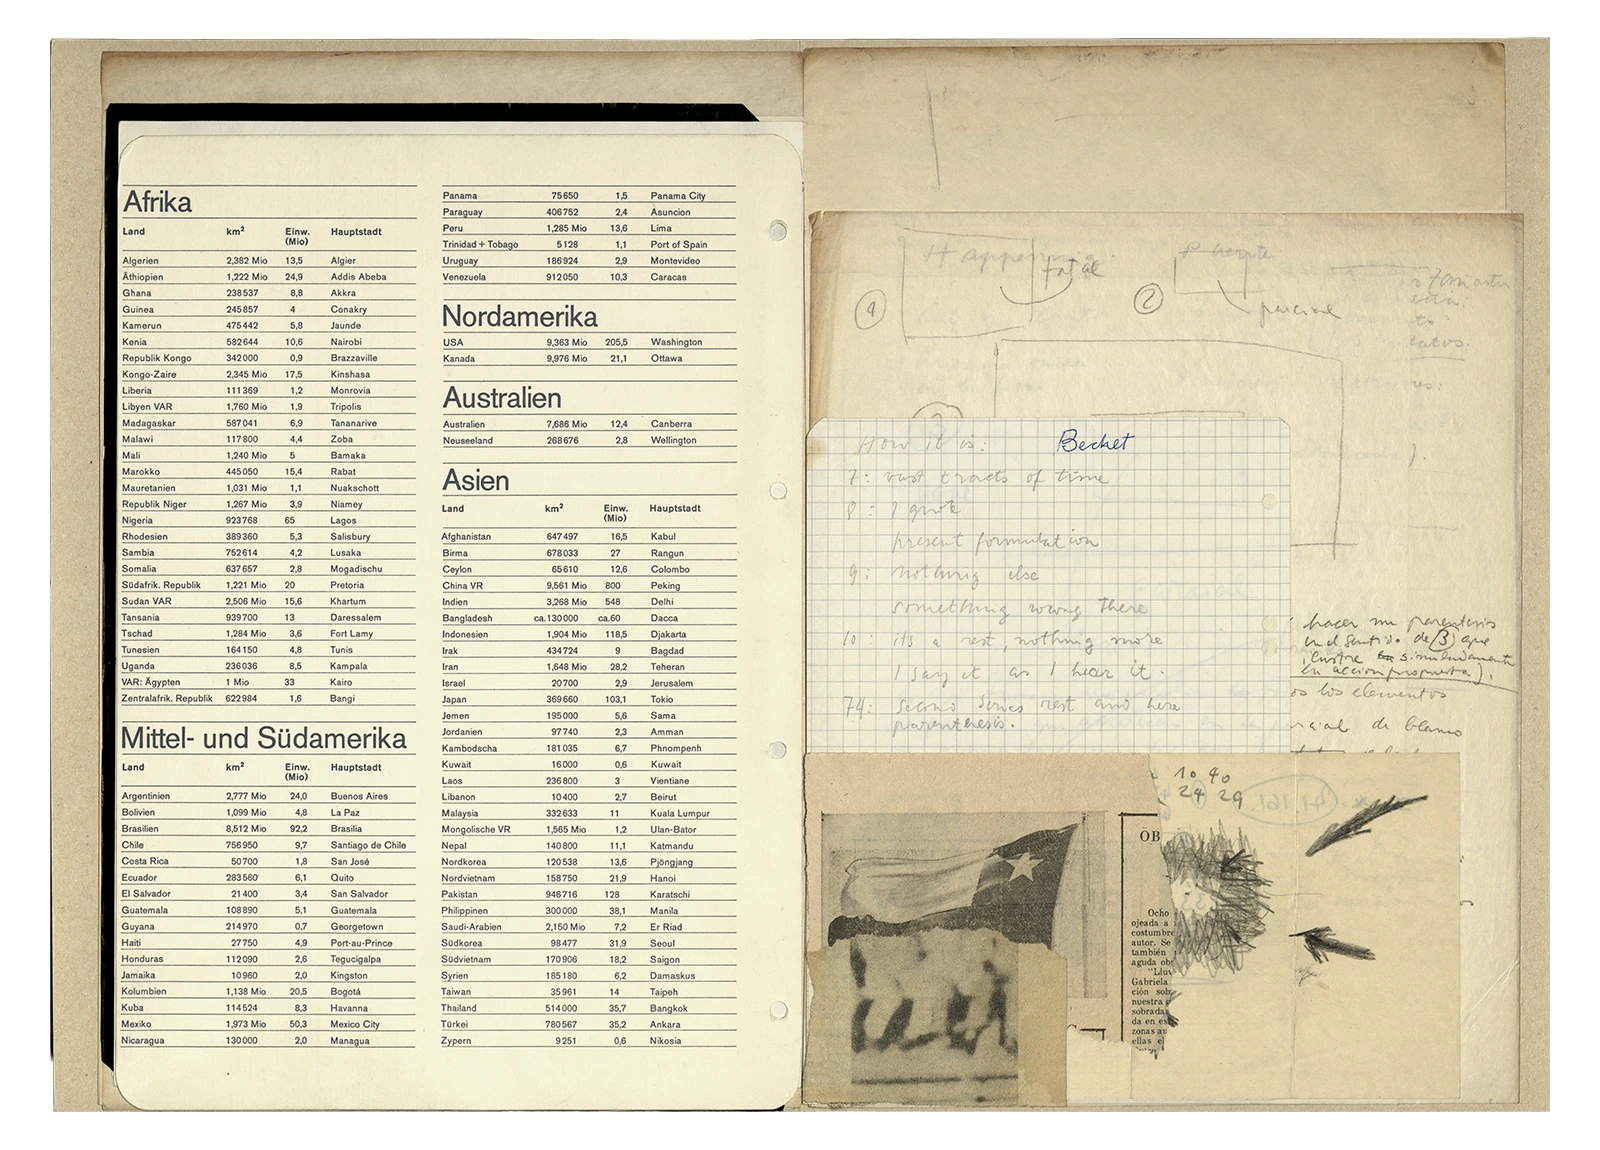 Afrika
Land km² Einw. (Mio) Hauptstadt
Algerien 2,382 Mio 13,5 Algier
Äthiopien 1,222 Mio 24,9 Addis Abeba
Ghana 238537 8,8 Akkra
Guinea 245857 4 Conakry
Kamerun 475442 5,8 Jaunde
Kenia 582644 10,6 Nairobi
Republik Kongo 342000 0,9 Brazzaville
Kongo-Zaire 2,345 Mio 17,5 Kinshasa
Liberia 111369 1,2 Monrovia
Libyen VAR 1,760 Mio 1,9 Tripolis
Madagaskar 587041 6,9 Tananarive
Malawi 117800 4,4 Zoba
Mali 1,240 Mio 5 Bamaka
Marokko 445050 15,4 Rabat
Mauretanien 1,031 Mio 1,1 Nuakschott
Republik Niger 1,267 Mio 3,9 Niamey
Nigeria 923768 65 Lagos
Rhodesien 389360 5,3 Salisbury
Sambia 752614 4,2 Lusaka
Somalia 637657 2,8 Mogadischu
Südafrik. Republik 1,221 Mio 20 Pretoria
Sudan VAR 2,506 Mio 15,6 Khartum
Tansania 939700 13 Daressalem
Tschad 1,284 Mio 3,6 Fort Lamy
Tunesien 164150 4,8 Tunis
Uganda 236036 8,5 Kampala
VAR: Ägypten 1 Mio 33 Kairo
Zentralafrik. Republik 622984 1,6 Bangi
Mittel- und Südamerika
Land km² Einw. (Mio) Hauptstadt
Argentinien 2,777 Mio 24,0 Buenos Aires
Bolivien 1,099 Mio 4,8 La Paz
Brasilien 8,512 Mio 92,2 Brasilia
Chile 756950 9,7 Santiago de Chile
Costa Rica 50700 1,8 San José
Ecuador 283560 6,1 Quito
El Salvador 21400 3,4 San Salvador
Guatemala 108890 5,1 Guatemala
Guyana 214970 0,7 Georgetown
Haiti 27750 4,9 Port-au-Prince
Honduras 112090 2,6 Tegucigalpa
Jamaika 10960 2,0 Kingston
Kolumbien 1,138 Mio 20,5 Bogotá
Kuba 114524 8,3 Havanna
Mexiko 1,973 Mio 50,3 Mexico City
Nicaragua 130000 2,0 Managua
Panama 75650 1,5 Panama City
Paraguay 406752 2,4 Asuncion
Peru 1,285 Mio 13,6 Lima
Trinidad + Tobago 5128 1,1 Port of Spain
Uruguay 186924 2,9 Montevideo
Venezuela 912050 10,3 Caracas
Nordamerika
USA 9,363 Mio 205,5 Washington
Kanada 9,976 Mio 21,1 Ottawa
Australien
Australien 7,686 Mio 12,4 Canberra
Neuseeland 268676 2,8 Wellington
Asien
Land km² Einw. (Mio) Hauptstadt
Afghanistan 647497 16,5 Kabul
Birma 678033 27 Rangun
Ceylon 65610 12,6 Colombo
China VR 9,561 Mio 800 Peking
Indien 3,268 Mio 548 Delhi
Bangladesh ca.130000 ca.60 Dacca
Indonesien 1,904 Mio 118,5 Djakarta
Irak 434724 9 Bagdad
Iran 1,648 Mio 28,2 Teheran
Israel 20700 2,9 Jerusalem
Japan 369660 103,1 Tokio
Jemen 195000 5,6 Sama
Jordanien 97740 2,3 Amman
Kambodscha 181035 6,7 Phnompenh
Kuwait 16000 0,6 Kuwait
Laos 236800 3 Vientiane
Libanon 10400 2,7 Beirut
Malaysia 332633 11 Kuala Lumpur
Mongolische VR 1,565 Mio 1,2 Ulan-Bator
Nepal 140800 11,1 Katmandu
Nordkorea 120538 13,6 Pjöngjang
Nordvietnam 158750 21,9 Hanoi
Pakistan 946716 128 Karatschi
Philippinen 300000 38,1 Manila
Saudi-Arabien 2,150 Mio 7,2 Er Riad
Südkorea 98477 31,9 Seoul
Südvietnam 170906 18,2 Saigon
Syrien 185180 6,2 Damaskus
Taiwan 35961 14 Taipeh
Thailand 514000 35,7 Bangkok
Türkei 780567 35,2 Ankara
Zypern 9251 0,6 Nikosia
Happening:
total
2
parcial
How it is: Becket
7: vast tracts of time
8: I quote
present formulation
9: nothing else
something wrong there
10: its a rest, nothing more
I say it as I hear it.
74: second series rest and here
parenthesis.
hacer un parentesis
en el sentido de (3) que
simultaneamente
en accion propuesta).
os los elementos
de blanco
10 40
24 29
OB
Ocho
ojeada a
costumbre
autor. Se
también
aguda ob
"Lluv
Gabriela
ción sob
nuestra
sobrada
da en es
zonas au
ellas el